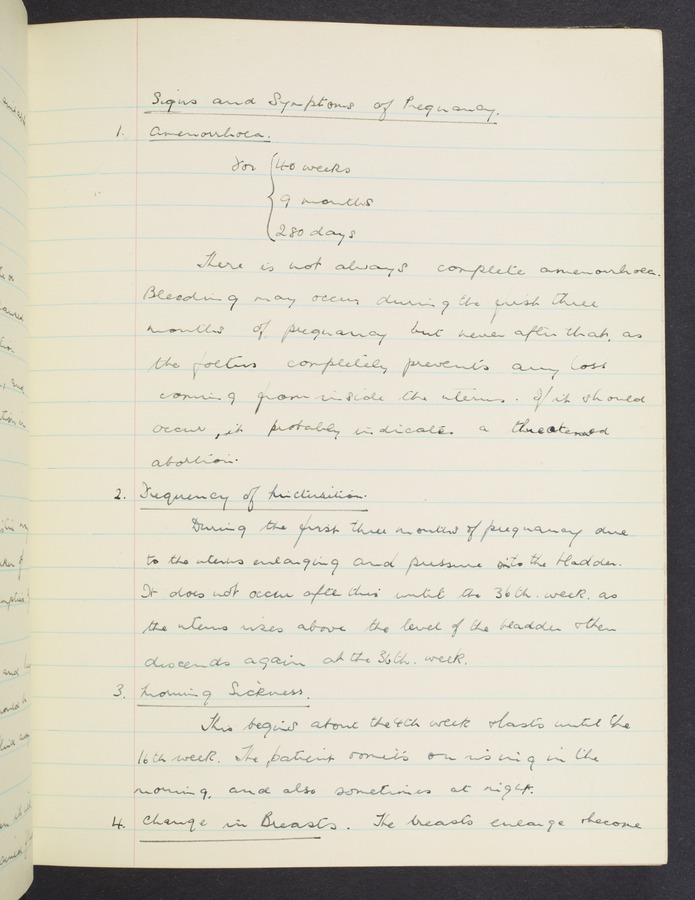 Signs and Symptoms of Pregnancy.
1. Amenorrhoea.
For { 40 weeks
9 months
280 days
There is not always complete amenorrhoea.
Bleeding may occur during the first three
months of pregnancy but never after that, as
the foetus completely prevents any loss
coming from inside the uterus. If it should
occur, it probably indicates a threatened
abortion.
2. Frequency of Micturition.
During the first three months of pregnancy due
to the uterus enlarging and pressure onto the bladder.
It does not occur after this until the 36th. week, as
the uterus rises above the level of the bladder & then
descends again at the 36th. week.
3. Morning Sickness.
This begins about the 4th week & lasts until the
16th week. The patient vomits on rising in the
morning, and also sometimes at night.
4. Change in Breasts. The breasts enlarge & become